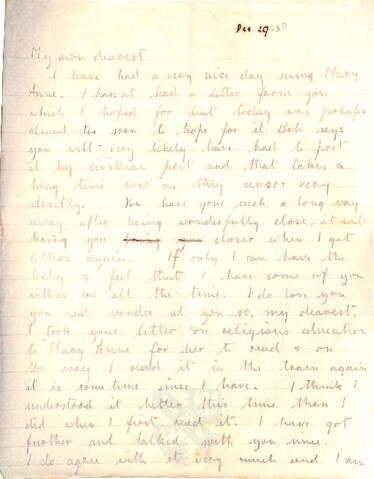 Dec 29-30
My own dearest
I have had a very nice day seeing Mary
Anne. I hasnt had a letter from you
which I hoped for but today was perhaps
almost too soon to hope for it. Bob says
you will very likely have had to post
it by civilian post and that takes a
long time now as they censor very
strictly. You have gone such a long way
away after being wonderfully close, it will
bring you closer when I get
letters again. If only I can have the
baby & feel that I have some of you
within me all the time. I do love you
you and wonder at you so, my dearest.
I took your letter on religious education
to Mary Anne for her to read & on
the way I read it in the train again
it is sometime since I have. I think I
understood it better this time than I
did when I first read it. I have got
further and talked with you since.
I do agree with it very much and I am